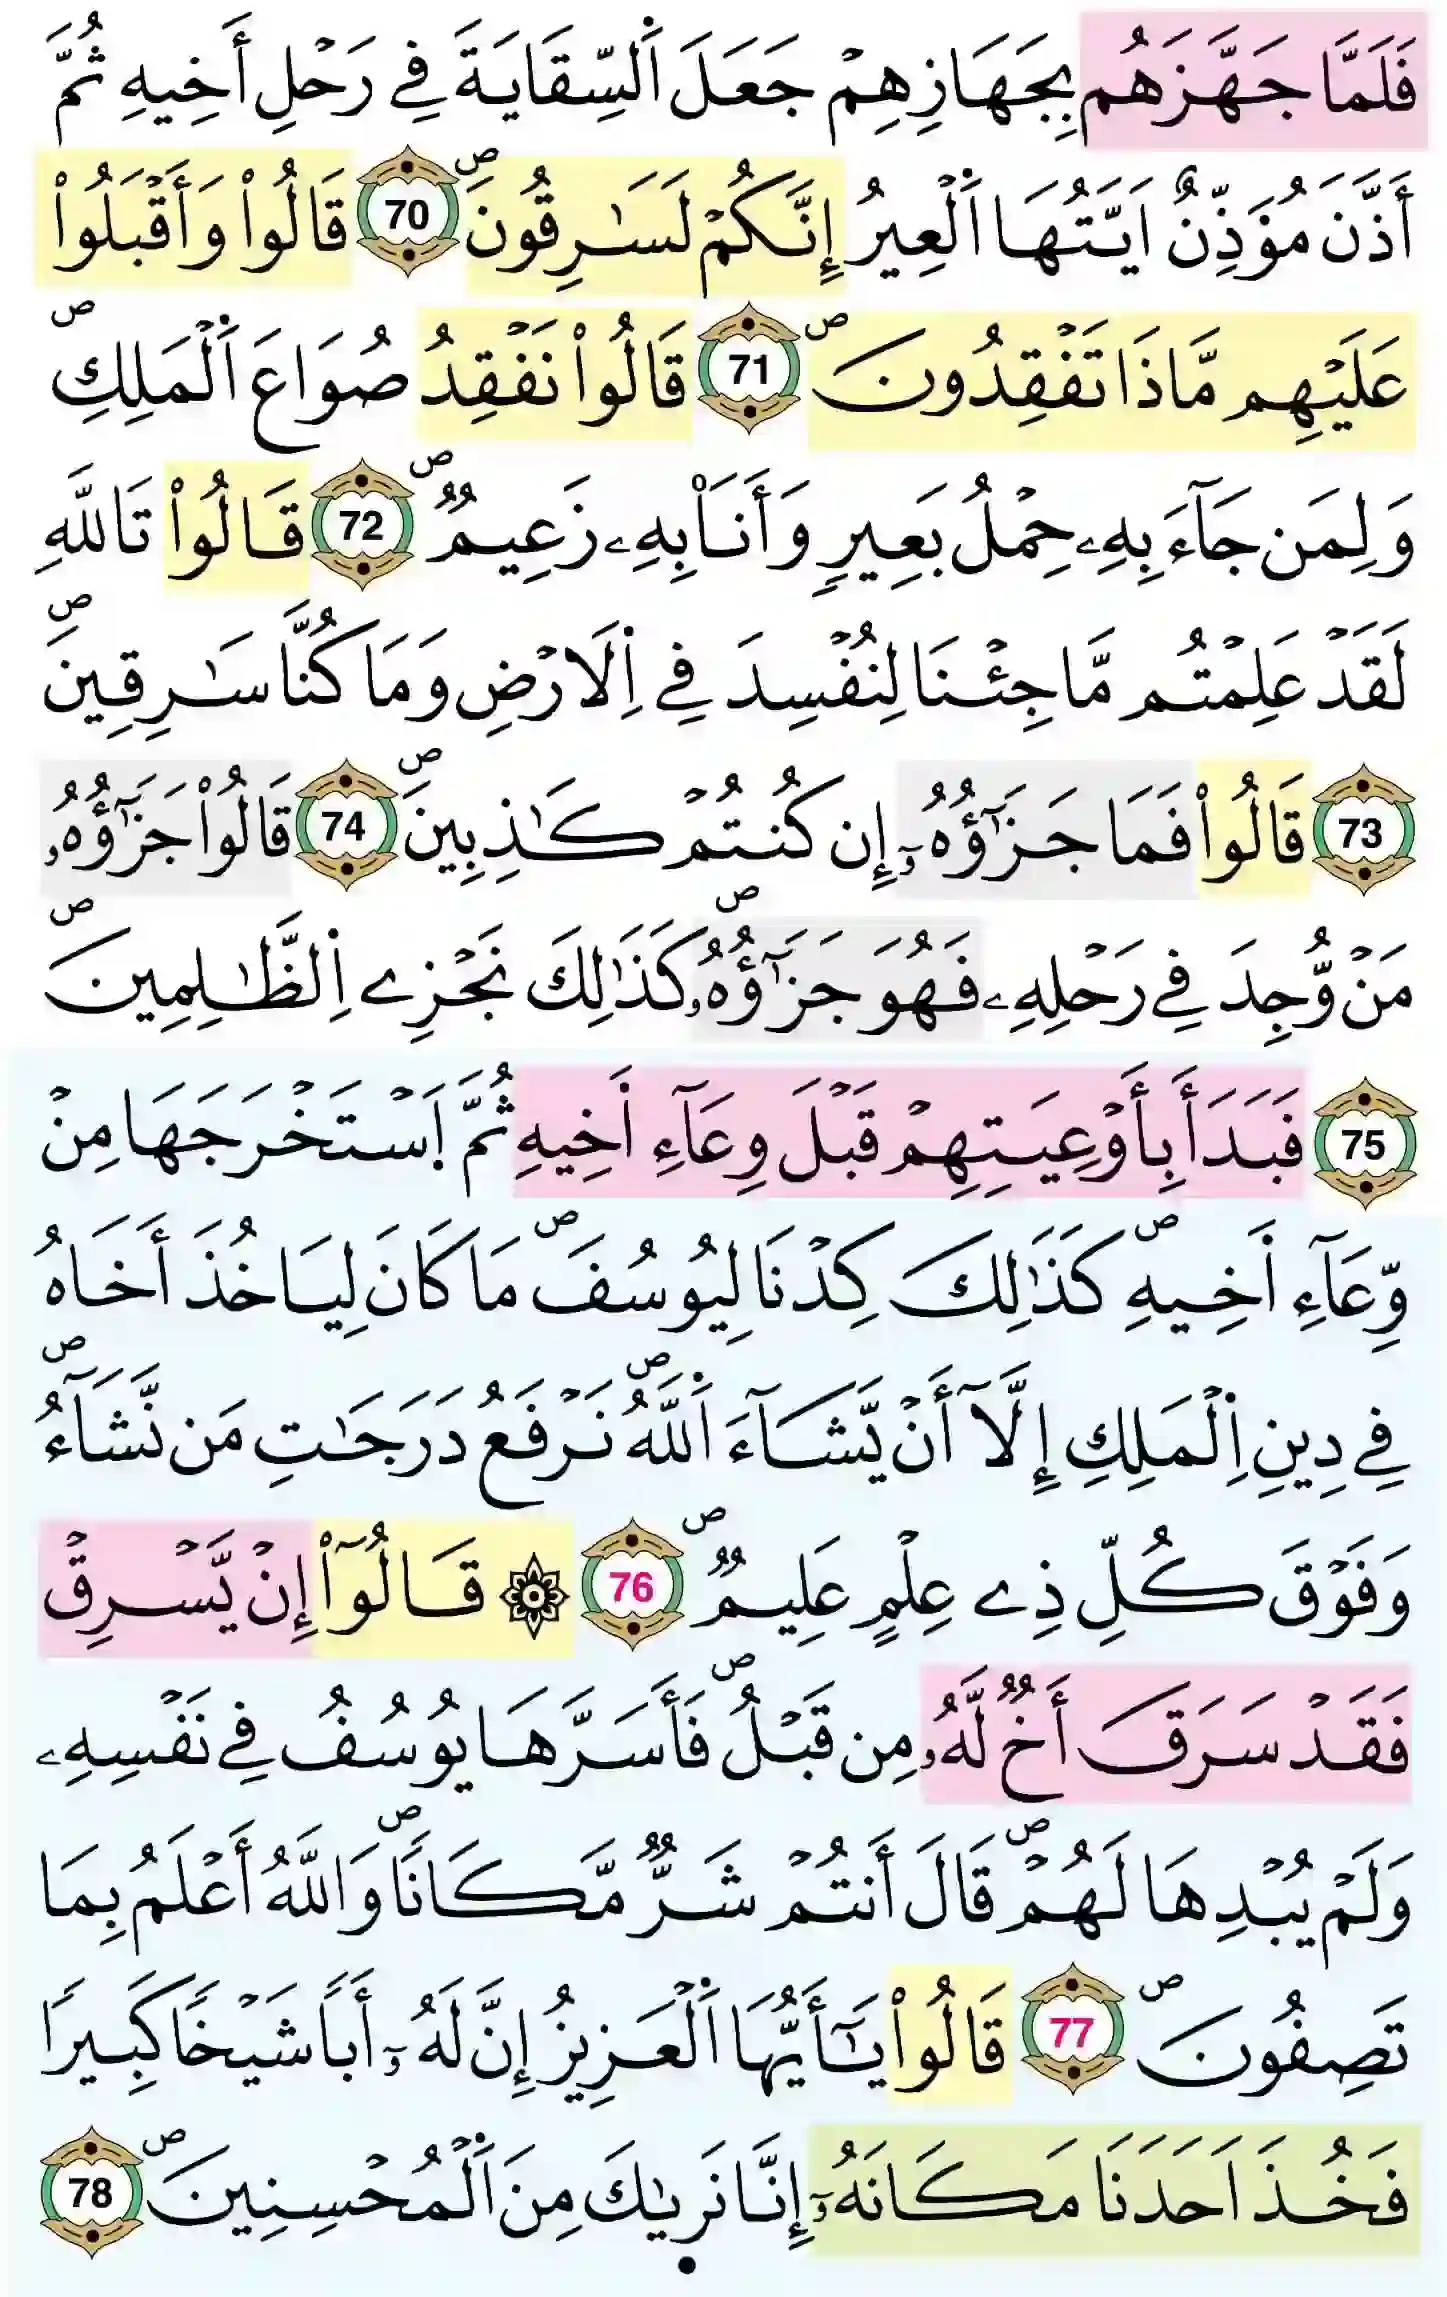 فَلَمَّا جَهَّزَهُم بِجَهَازِهِمْ جَعَلَ اَ۬لسِّقَايَةَ فِے رَحْلِ أَخِيهِ ثُمَّ
أَذَّنَ مُؤَذِّنٌ اَيَّتُهَا اَ۬لْعِيرُ إِنَّكُمْ لَسَٰرِقُونَۖ 70 قَالُواْ وَأَقْبَلُواْ
عَلَيْهِم مَّاذَا تَفْقِدُونَۖ 71 قَالُواْ نَفْقِدُ صُوَاعَ اَ۬لْمَلِكِۖ
وَلِمَن جَآءَ بِهِۦ حِمْلُ بَعِيرٖ وَأَنَا۠ بِهِۦ زَعِيمٞۖ 72 قَالُواْ تَاللَّهِ
لَقَدْ عَلِمْتُم مَّا جِئْنَا لِنُفْسِدَ فِے اِ۬لَارْضِ وَمَا كُنَّا سَٰرِقِينَۖ
73 قَالُواْ فَمَا جَزَٰٓؤُهُۥٓ إِن كُنتُمْ كَٰذِبِينَۖ 74 قَالُواْ جَزَٰٓؤُهُۥ
مَنْ وُّجِدَ فِے رَحْلِهِۦ فَهُوَ جَزَٰٓؤُهُۥۖ كَذَٰلِكَ نَجْزِے اِ۬لظَّٰلِمِينَۖ
75 فَبَدَأَ بِأَوْعِيَتِهِمْ قَبْلَ وِعَآءِ اَ۬خِيهِ ثُمَّ اَ۪سْتَخْرَجَهَا مِنْ
وِّعَآءِ اَ۬خِيهِۖ كَذَٰلِكَ كِدْنَا لِيُوسُفَۖ مَا كَانَ لِيَاخُذَ أَخَاهُ
فِے دِينِ اِ۬لْمَلِكِ إِلَّآ أَنْ يَّشَآءَ اَ۬للَّهُۖ نَرْفَعُ دَرَجَٰتِ مَن نَّشَآءُۖ
وَفَوْقَ كُلِّ ذِے عِلْمٍ عَلِيمٞۖ 76 ۞ قَالُوٓاْ إِنْ يَّسْرِقْ
فَقَدْ سَرَقَ أَخٞ لَّهُۥ مِن قَبْلُۖ فَأَسَرَّهَا يُوسُفُ فِے نَفْسِهِۦ
وَلَمْ يُبْدِهَا لَهُمْۖ قَالَ أَنتُمْ شَرّٞ مَّكَاناٗۖ وَاللَّهُ أَعْلَمُ بِمَا
تَصِفُونَۖ 77 قَالُواْ يَٰٓأَيُّهَا اَ۬لْعَزِيزُ إِنَّ لَهُۥٓ أَباٗ شَيْخاٗ كَبِيراٗ
فَخُذَ اَحَدَنَا مَكَانَهُۥٓ إِنَّا نَر۪يٰكَ مِنَ اَ۬لْمُحْسِنِينَۖ 78